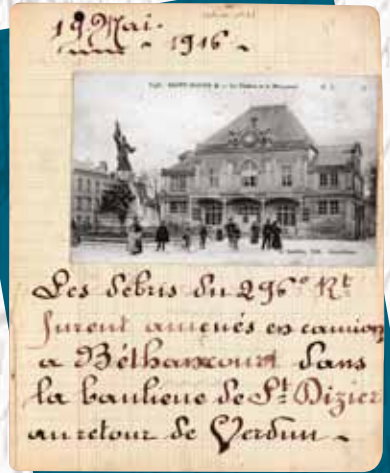 19 Mai.
1916 -
SAINT-DIZIER - Le Théâtre et le Monument
Les débris du 296e Rt
furent amenés en camion
a Béthancourt dans
la banlieue de St Dizier
au retour de Verdun -